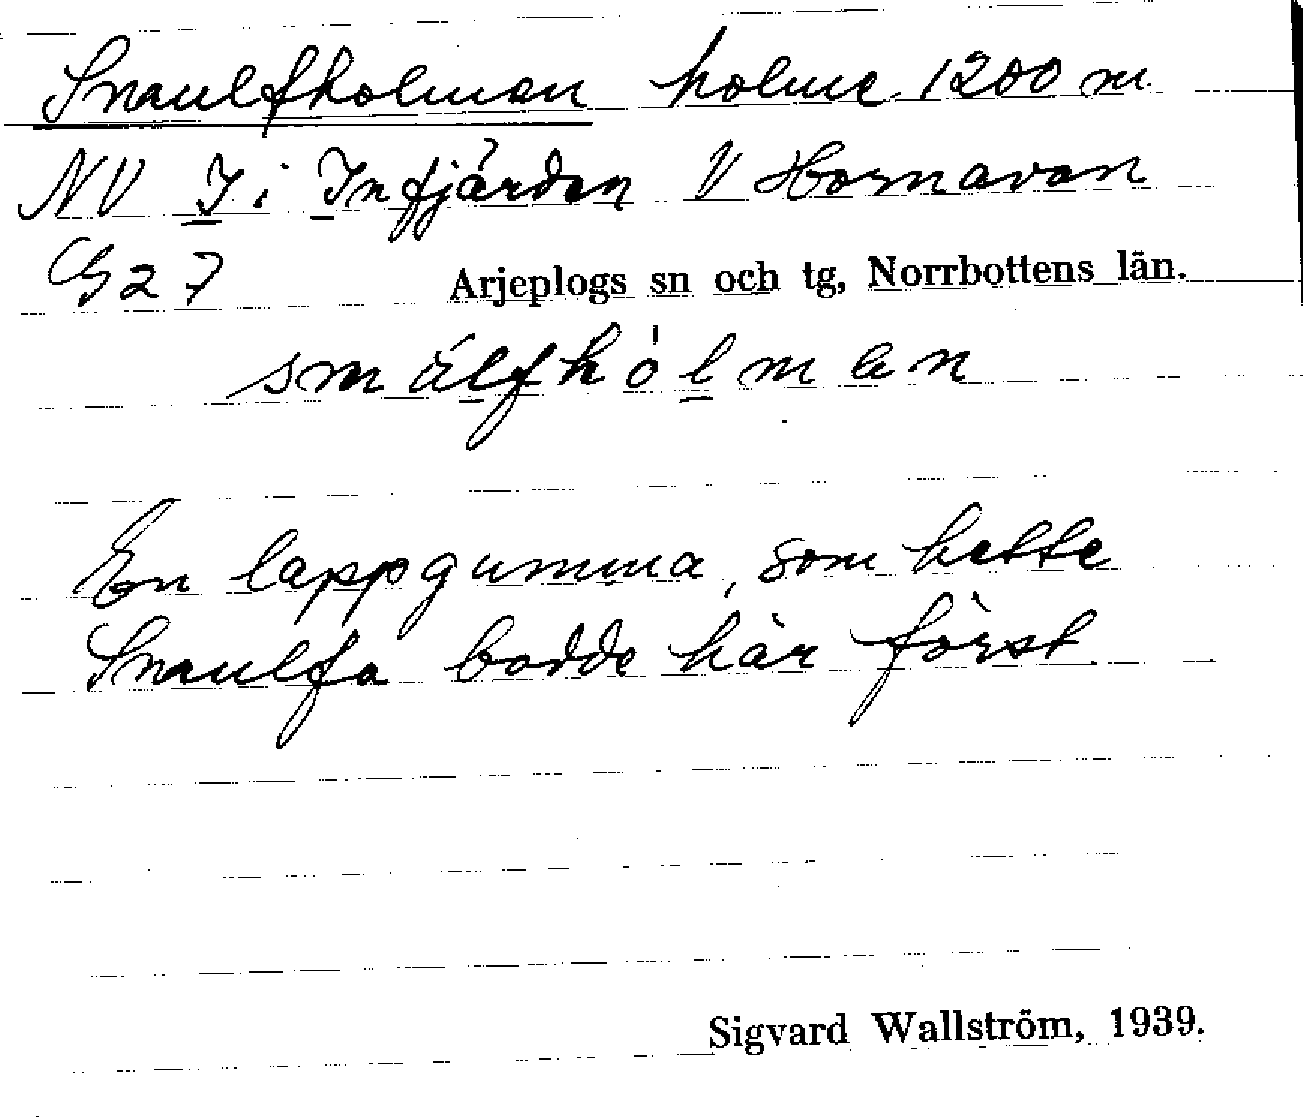 Snaulfholmen holme 1200 m
NV I i Infjärden V Hornavan
G27 Arjeplogs sn och tg, Norrbottens län.
En lappgumma, som hette
Snaulfa bodde här först
Sigvard Wallström, 1939.